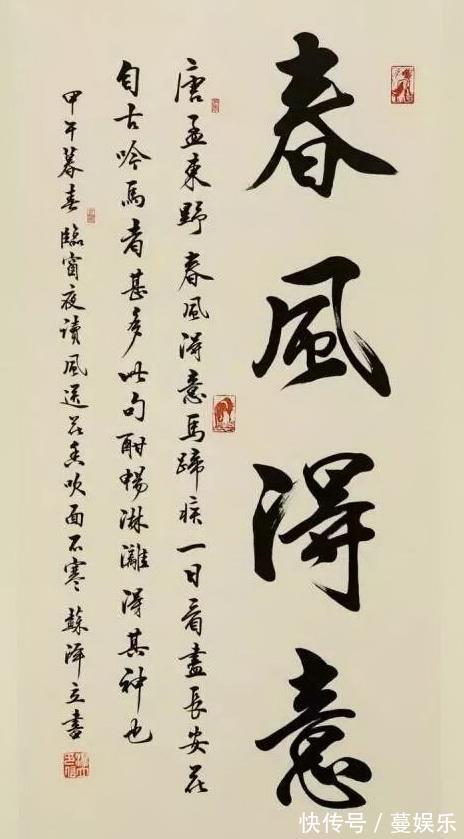 春風得意
唐孟東野春風得意馬蹄疾一日看盡長安花
自古吟馬者甚多此句酣暢淋漓得其神也
甲午暮春臨窗夜讀風送花香吹面不寒蘇澤立書
快传号／蔓娱乐